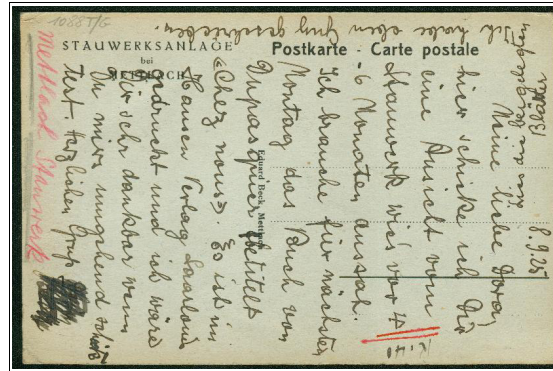 1088T/G
Ich habe eben Guy geschrieben.
STAUWERKSANLAGE
bei
METTLACH
Postkarte - Carte postale
Eduard Beck, Mettlach
Mettlach Stauwerk
8.9.25
Meine liebe Dora,
hier schicke ich Dir
eine Ansicht vom
Stauwerk wie's vor 4
-6 Monaten aussah.
Ich brauche für nächsten
Montag das Buch von
Dupasquier betitelt
«Chez nous». Es ist im
Hausen Verlag Saarlouis
gedruckt und ich wäre
Dir sehr dankbar wenn
Du mir's umgehend
Herzlichen Gruß